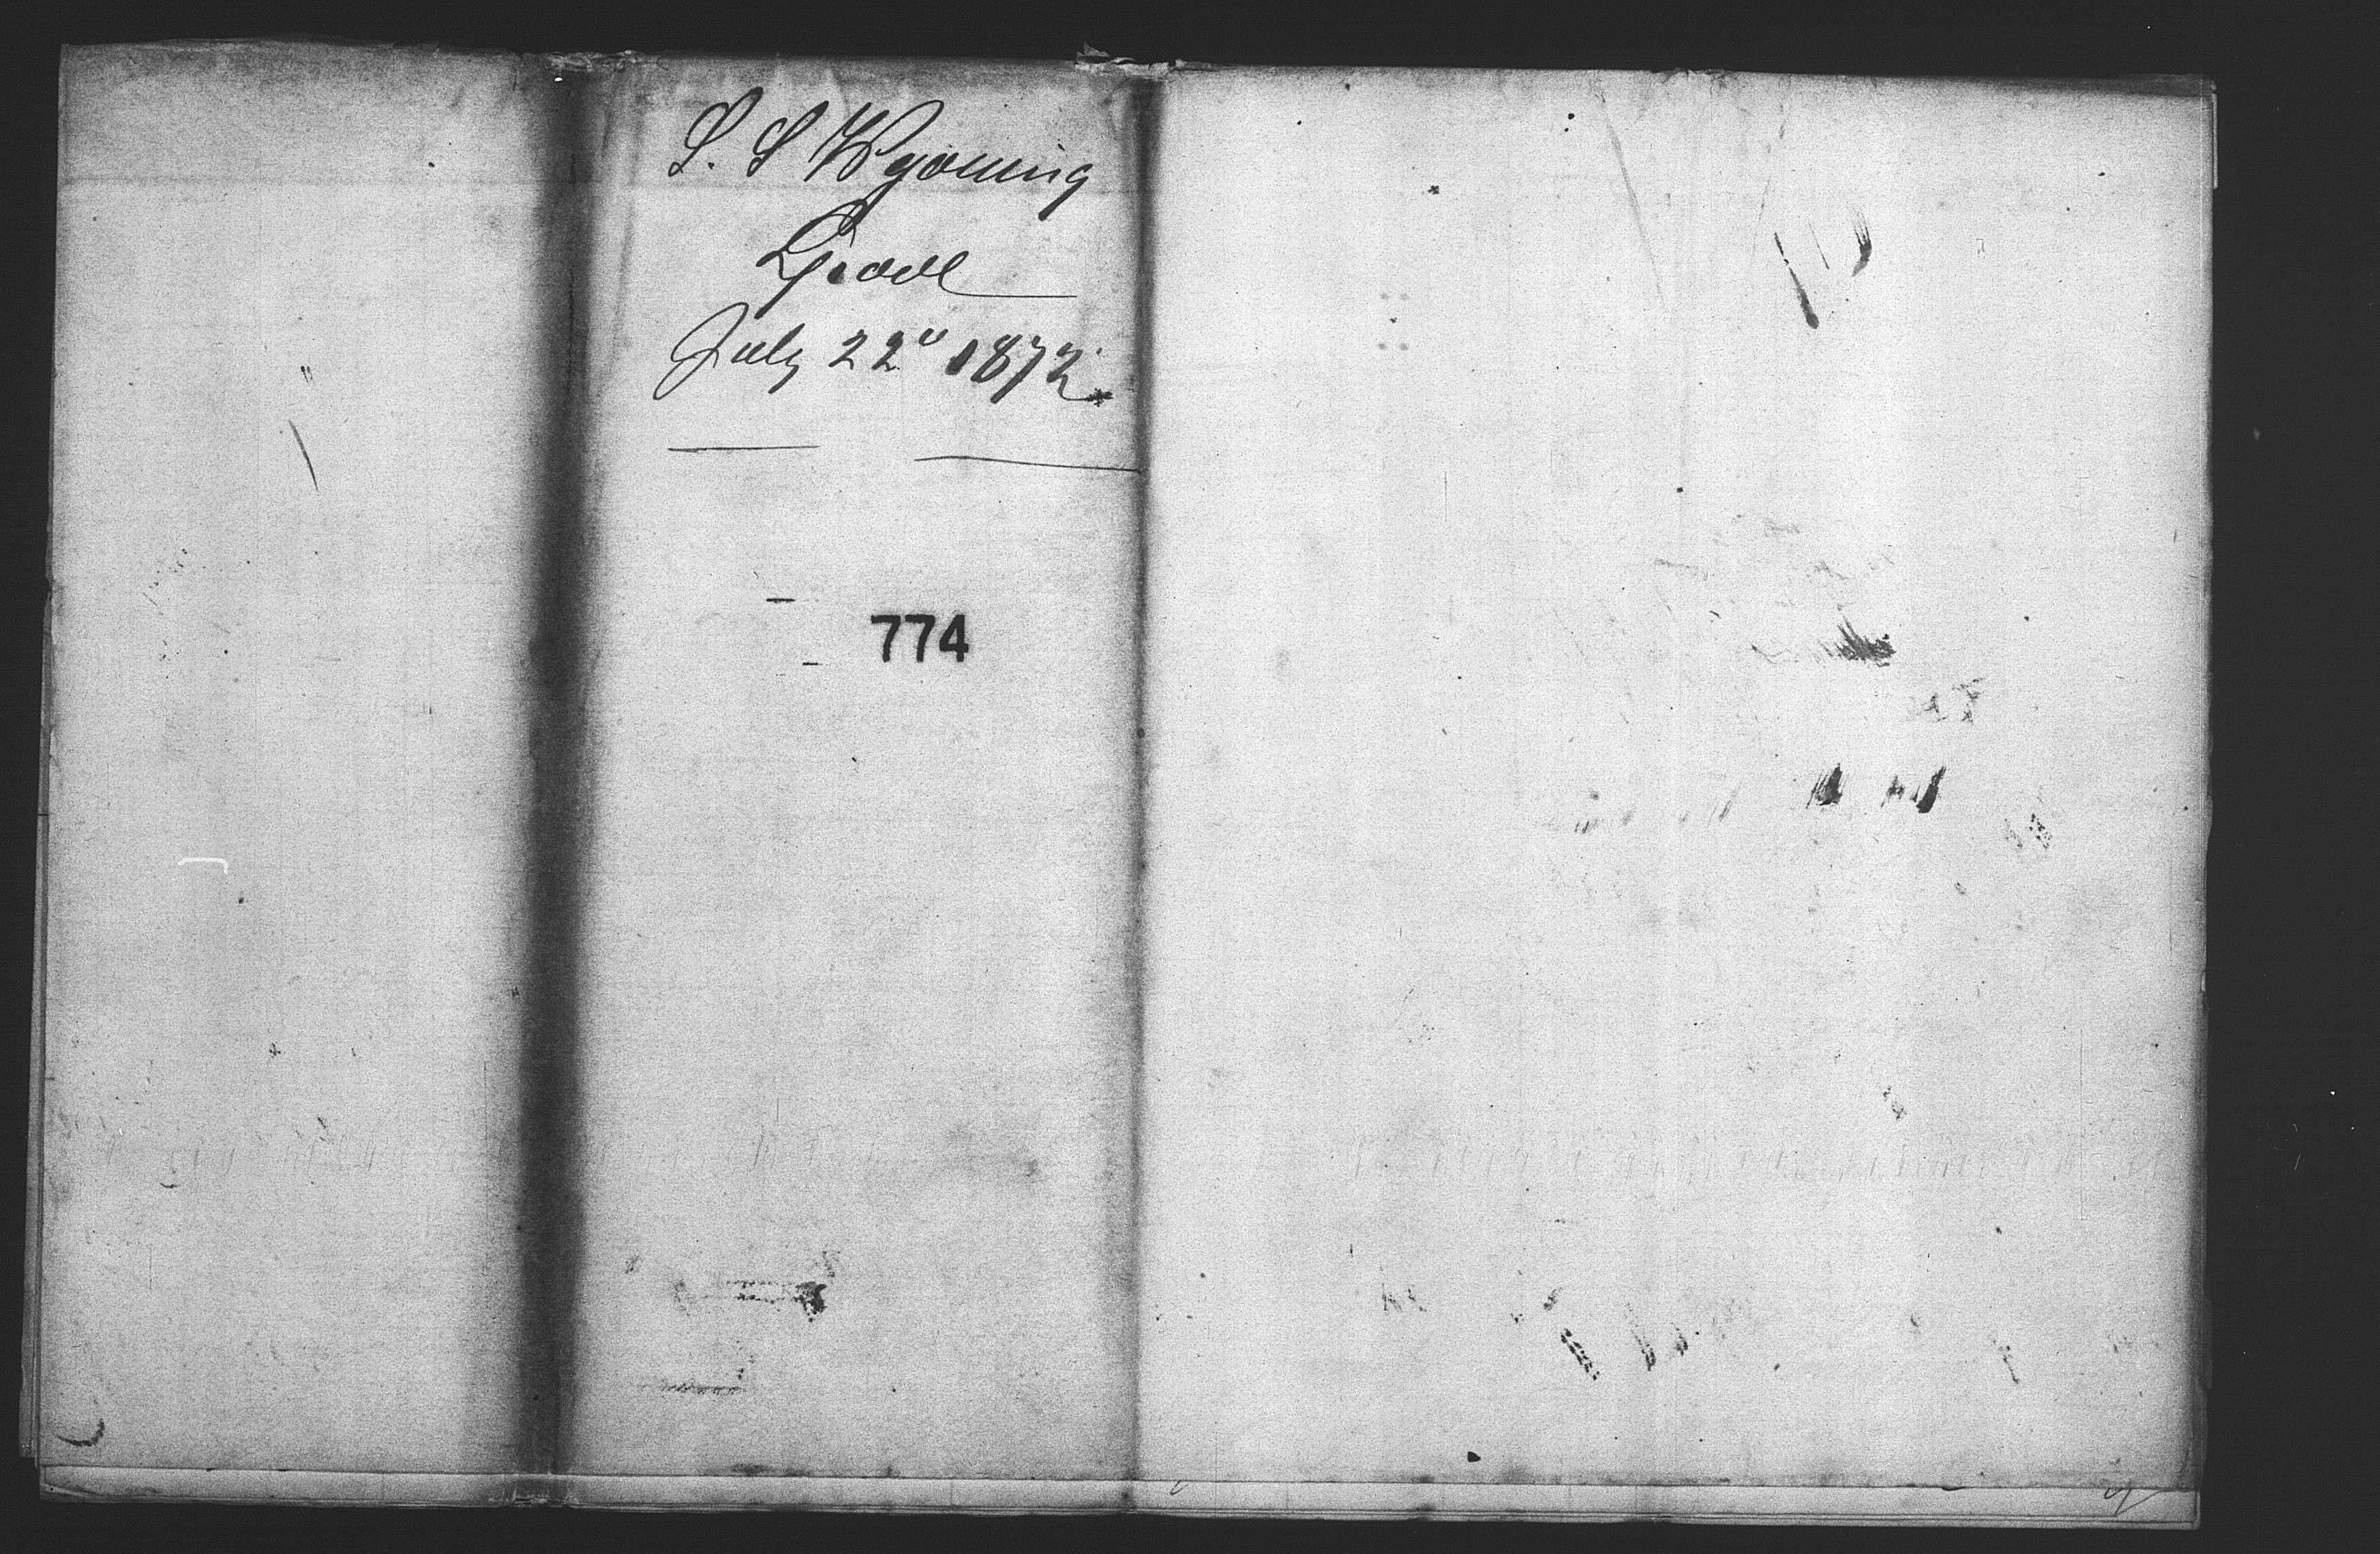 S. S Wyoming
July 22" 1872.
774